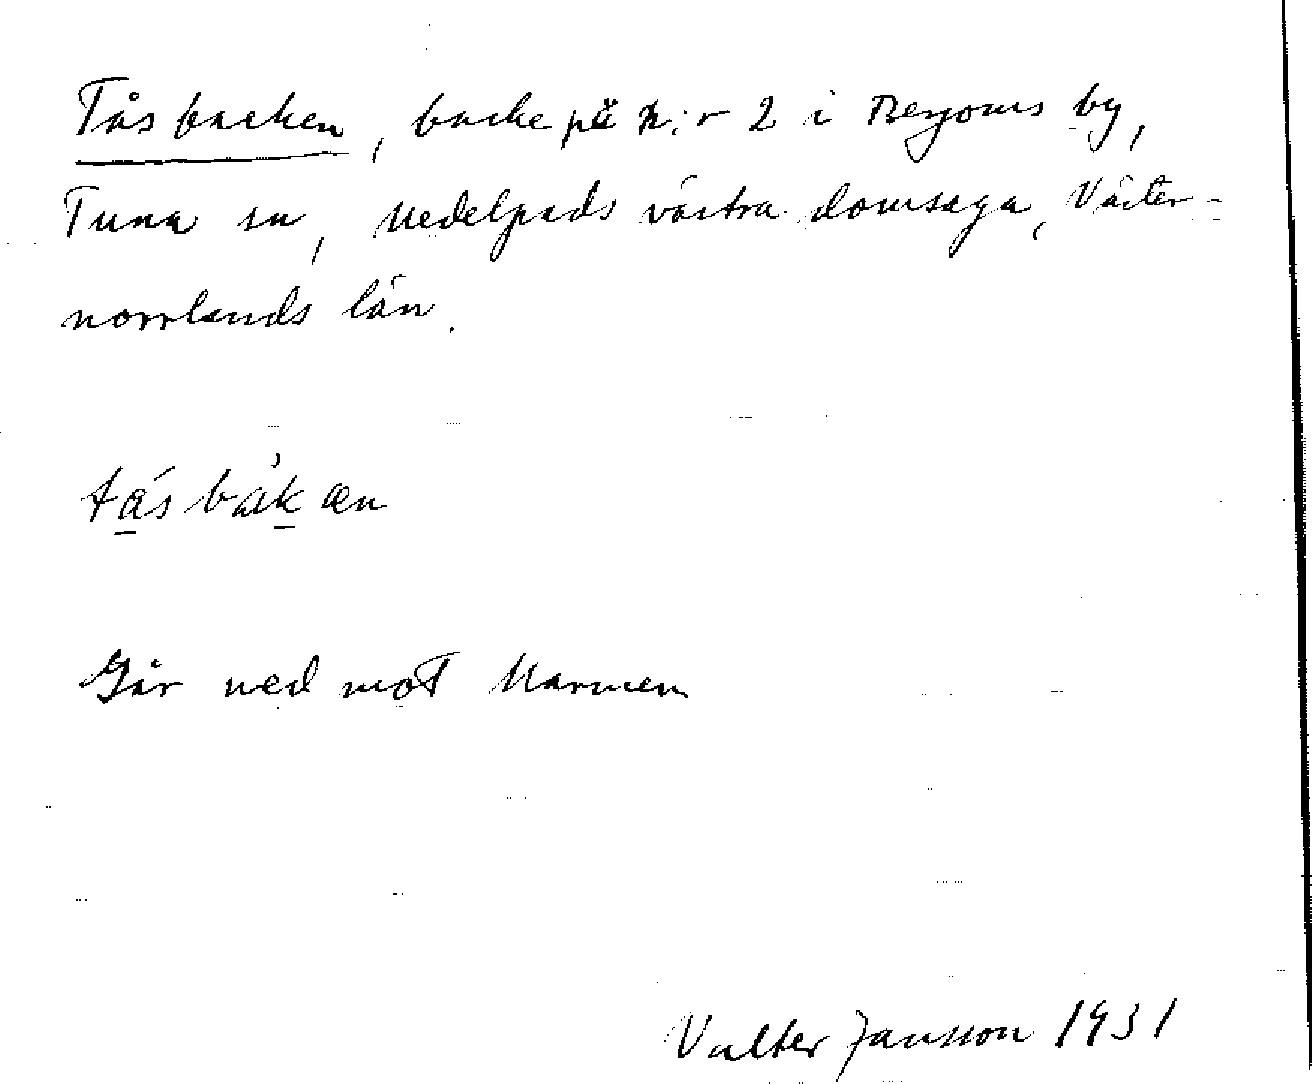 Tåsbacken, backe på n:r 2 i Bergoms by,
Tuna sn, Medelpads västra domsaga, Väster-
norrlands län.
tásbàkæn
Går ned mot Marmen
Valter Jansson 1931